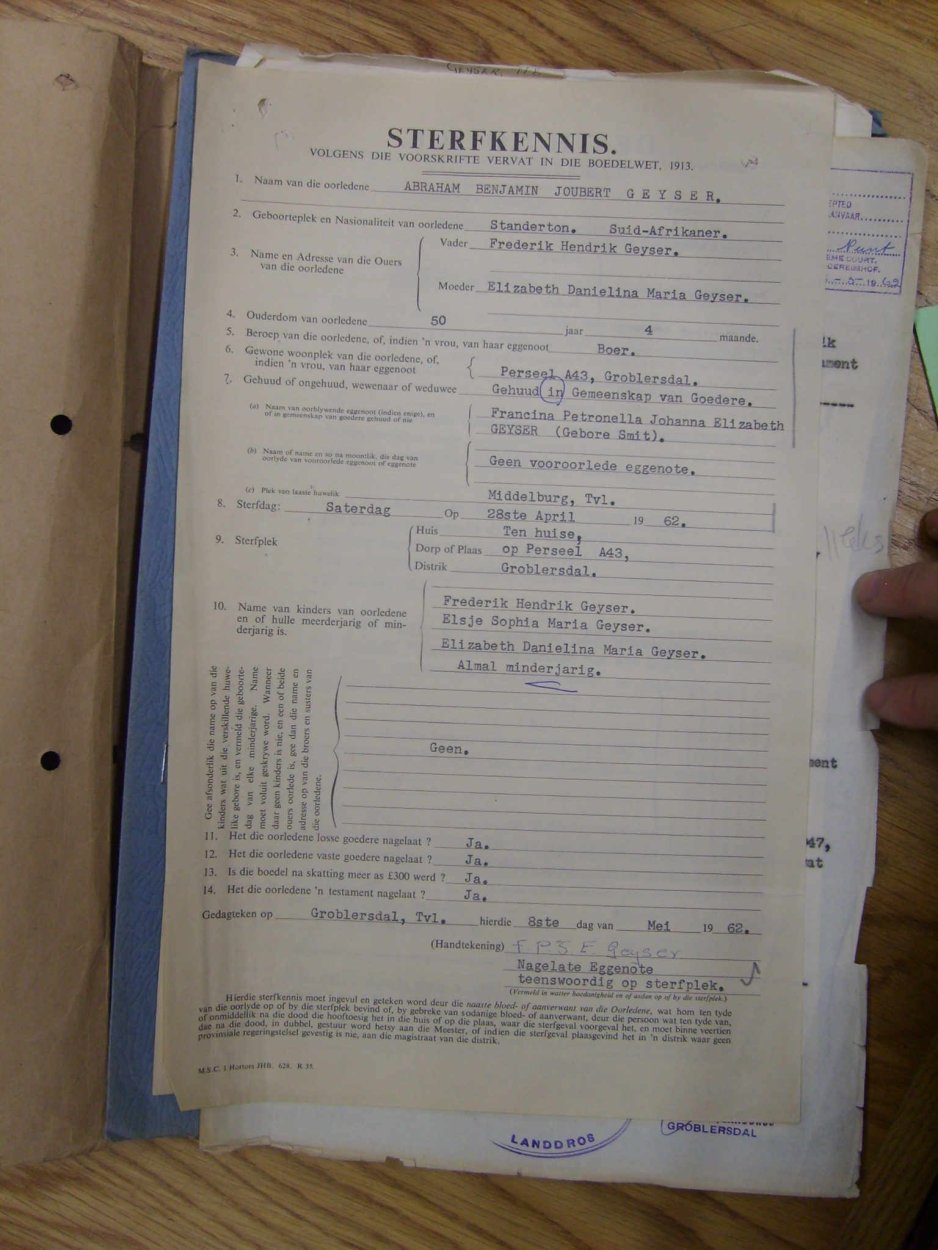 GEYSER
STERFKENNIS.
VOLGENS DIE VOORSKRIFTE VERVAT IN DIE BOEDELWET, 1913.
1. Naam van die oorledene ABRAHAM BENJAMIN JOUBERT G E Y S E R.
2. Geboorteplek en Nasionaliteit van oorledene Standerton. Suid-Afrikaner.
3. Name en Adresse van die Ouers van die oorledene
Vader Frederik Hendrik Geyser.
Moeder Elizabeth Danielina Maria Geyser.
4. Ouderdom van oorledene 50 jaar 4 maande.
5. Beroep van die oorledene, of, indien 'n vrou, van haar eggenoot Boer.
6. Gewone woonplek van die oorledene, of,
indien 'n vrou, van haar eggenoot Perseel A43, Groblersdal.
7. Gehuud of ongehuud, wewenaar of weduwee Gehuud in Gemeenskap van Goedere.
(a) Naam van oorblywende eggenoot (indien enige), en
of in gemeenskap van goedere gehuud of nie
Francina Petronella Johanna Elizabeth
GEYSER (Gebore Smit).
(b) Naam of name en so na moontlik, die dag van
oorlyde van vooroorlede eggenoot of eggenote
Geen vooroorlede eggenote.
(c) Plek van laaste huwelik Middelburg, Tvl.
8. Sterfdag: Saterdag Op 28ste April 19 62.
9. Sterfplek
Huis Ten huise,
Dorp of Plaas op Perseel A43,
Distrik Groblersdal.
10. Name van kinders van oorledene
en of hulle meerderjarig of min-
derjarig is.
Frederik Hendrik Geyser.
Elsje Sophia Maria Geyser.
Elizabeth Danielina Maria Geyser.
Almal minderjarig.
Gee afsonderlik die name op van die
kinders wat uit die verskillende huwe-
like gebore is, en vermeld die geboorte-
dag van elke minderjarige. Name
moet voluit geskrywe word. Wanneer
daar geen kinders is nie, en een of beide
ouers oorlede is, gee dan die name en
adresse op van die broers en susters van
die oorledene.
Geen.
11. Het die oorledene losse goedere nagelaat ? Ja.
12. Het die oorledene vaste goedere nagelaat ? Ja.
13. Is die boedel na skatting meer as £300 werd ? Ja.
14. Het die oorledene 'n testament nagelaat ? Ja.
Gedagteken op Groblersdal, Tvl. hierdie 8ste dag van Mei 19 62.
(Handtekening) F P J E Geyser
Nagelate Eggenote
teenswoordig op sterfplek.
(Vermeld in watter hoedanigheid en of anders op of by die sterfplek.)
Hierdie sterfkennis moet ingevul en geteken word deur die naaste bloed- of aanverwant van die Oorledene, wat hom ten tyde
van die oorlyde op of by die sterfplek bevind of, by gebreke van sodanige bloed- of aanverwant, deur die persoon wat ten tyde van,
of onmiddellik na die dood die hooftoesig het in die huis of op die plaas, waar die sterfgeval voorgeval het, en moet binne veertien
dae na die dood, in dubbel, gestuur word hetsy aan die Meester, of indien die sterfgeval plaasgevind het in 'n distrik waar geen
provinsiale regeringstelsel gevestig is nie, aan die magistraat van die distrik.
M.S.C. 1 Hortors JHB. 628. R 35.
LANDDROS
GROBLERSDAL